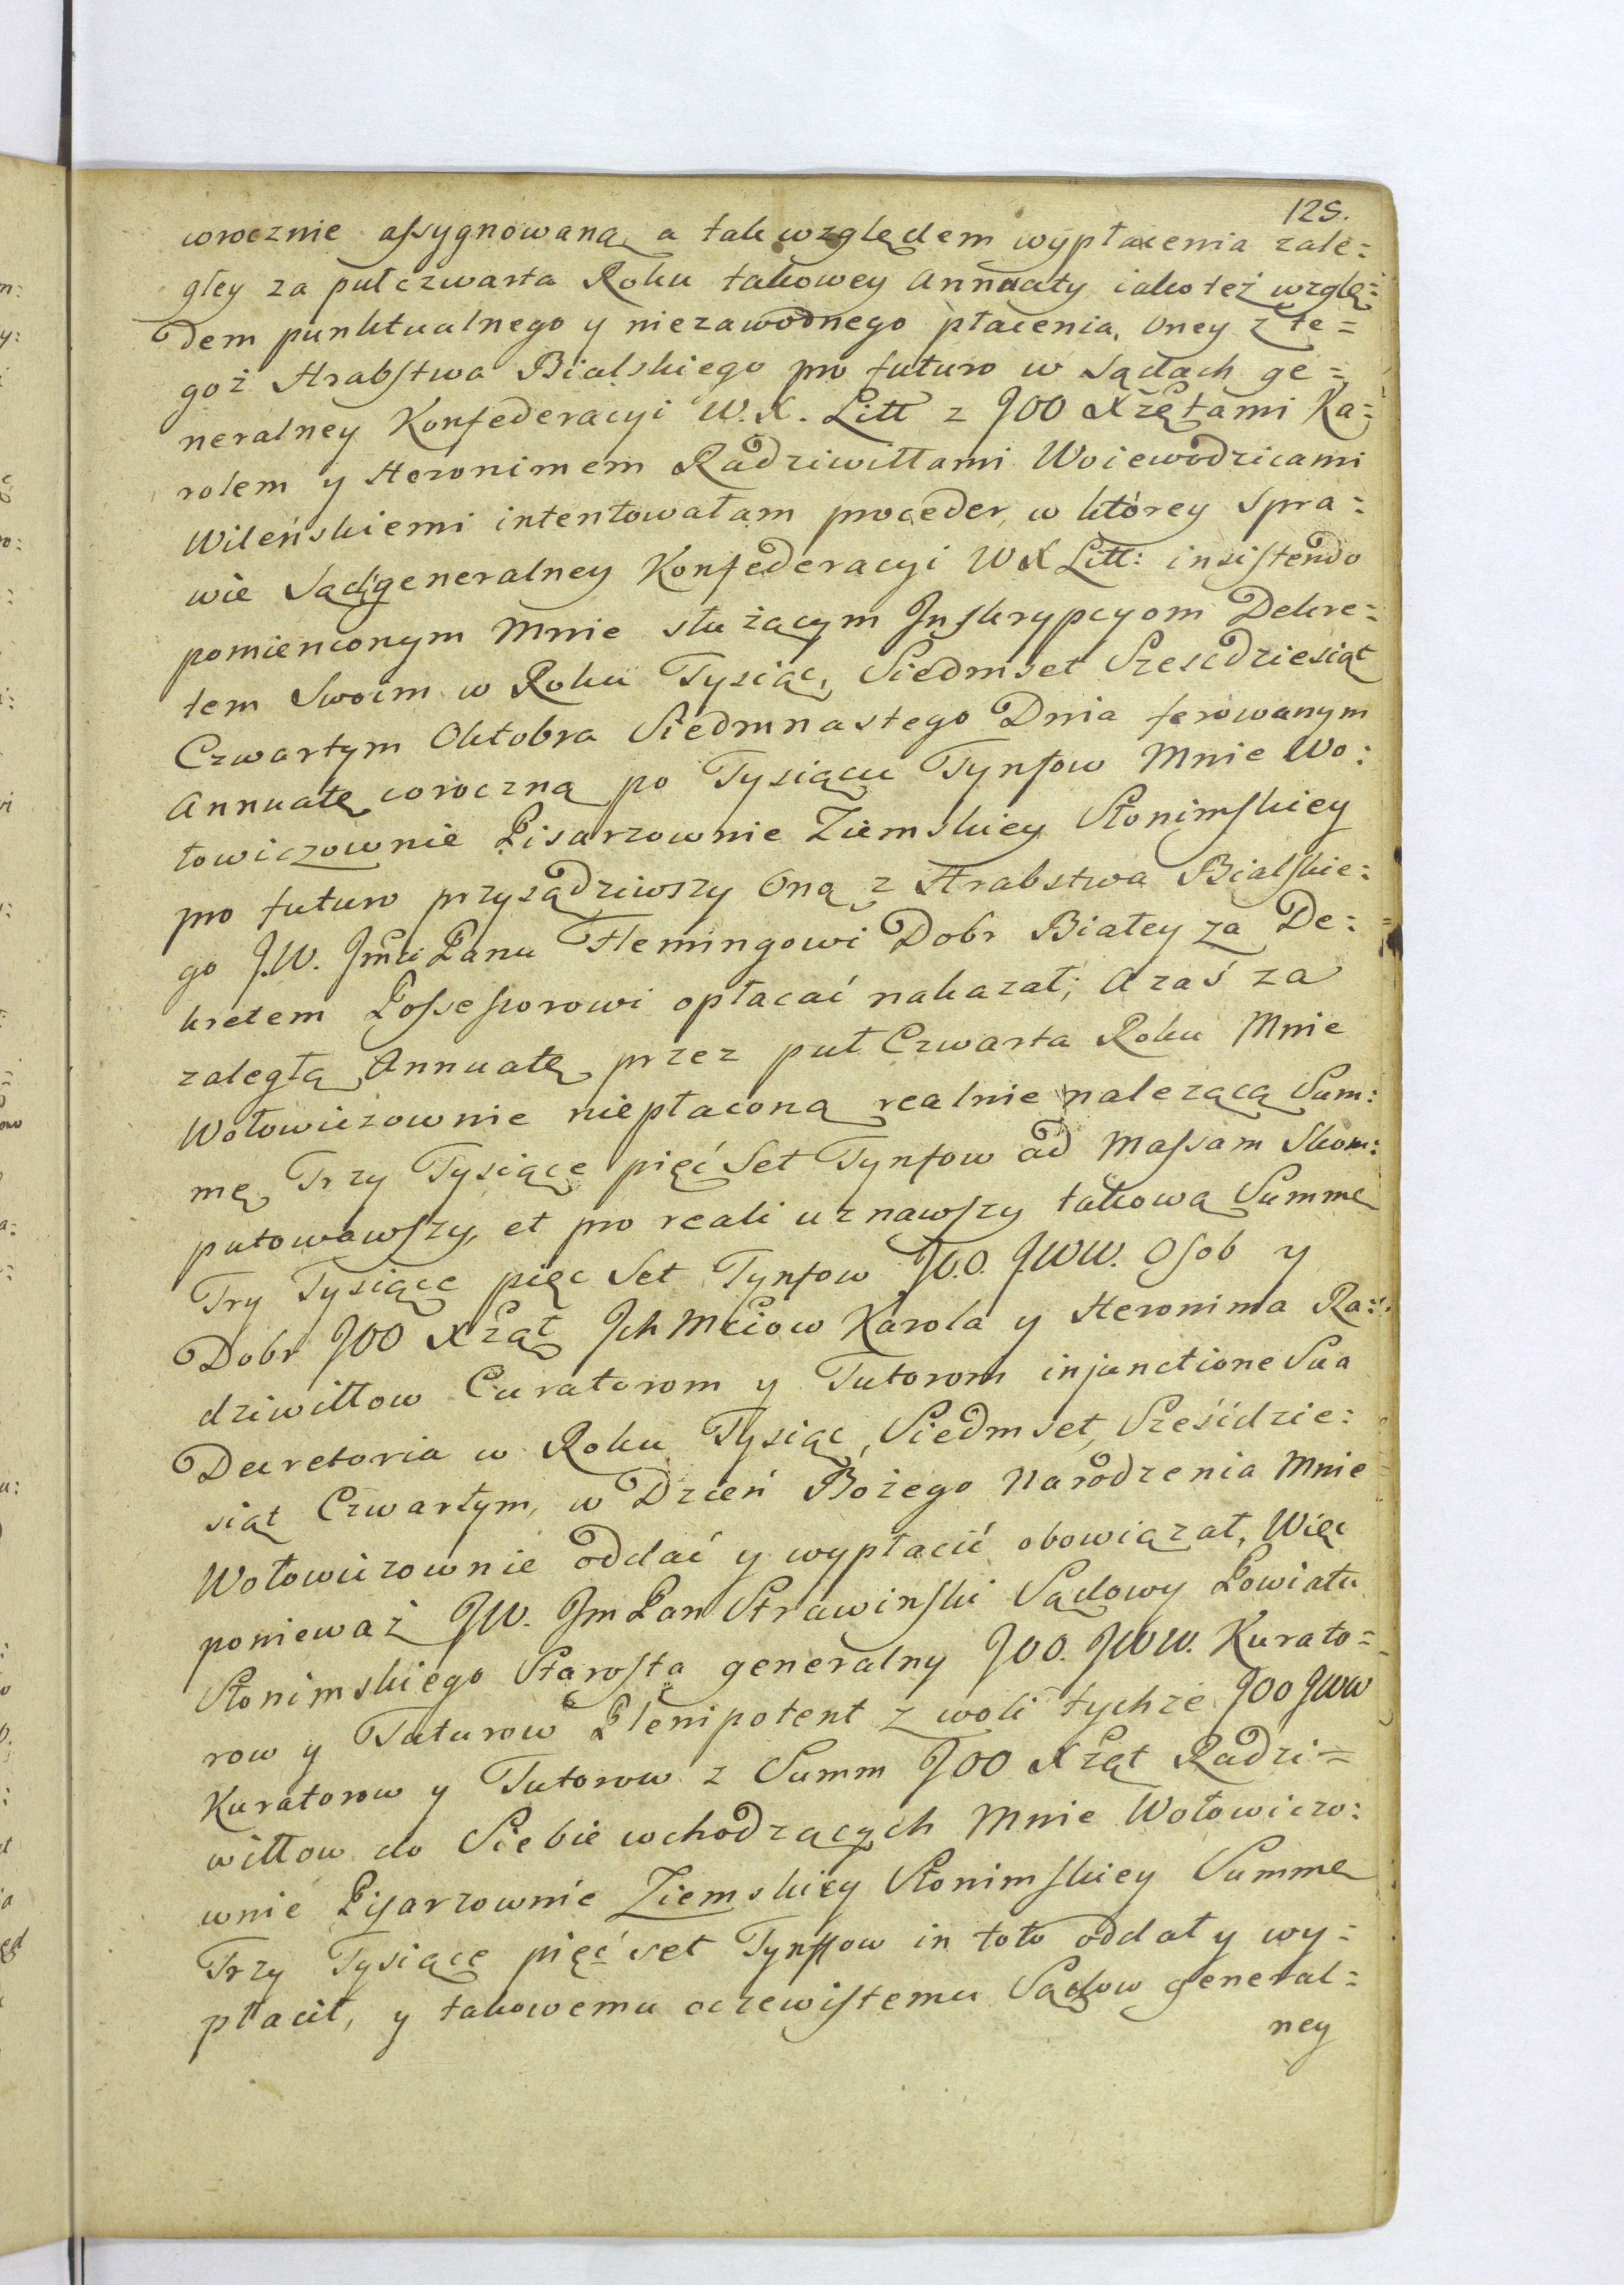 125.
corocznie assygnowaną, a tak względem wypłacenia zale=
głey za pułczwarta Roku takowey Annuaty iako też wzglę=
dem punktualnego y niezawodnego płacenia, Oney z te=
goż Hrabstwa Bialskiego pro futuro w Sądach ge=
neralney Konfederacyi W. X. Litt z JOO Xżętami Ka=
rolem y Heronimem Radziwiłłami Woiewodzicami
Wileńskiemi intentowałam proceder, w którey spra=
wie Sąd generalney Konfederacyi WX Litt: insistendo
pomienionym Mnie służącym Inskrypcyom Dekre=
tem Swoim w Roku Tysiąc, Siedmset Szescdziesiąt
Czwartym Oktobra Siedmnastego Dnia ferowanym
Annuatę coroczną po Tysiącu Tynfow Mnie Wo:
łowiczownie Pisarzownie Ziemskiey Słonimskiey
pro futuro przysądziwszy Oną z Hrabstwa Bialskie:
go J.W. Jmci Panu Flemingowi Dobr Białey za De:
kretem Possessorowi opłacać nakazał; A zaś za
zaległą Annuatę przez puł Czwarta Roku Mnie
Wołowiczownie niepłaconą realnie należącą Sum:
mę Trzy Tysiące pięć Set Tynfow ad Massam Skom:
putowawszy, et pro reali uznawszy takową Summę
Try Tysiące pięc Set Tynfow JO.O. JWW. Osob y
Dobr JOO Xżąt Ich Mciow Karola y Heronima Ra:
dziwiłłow Curatorom y Tutorom injunctione Sua
Decretoria w Roku Tysiąc, Siedmset, Sześćdzie:
siąt Czwartym, w Dzień Bożego Narodzenia Mnie
Wołowiczownie oddać y wypłacić obowiązał, Więc
ponieważ JW. Jm Pan Strawinski Sądowy Powiatu
Słonimskiego Starosta generalny JOO. JWW. Kurato=
row y Tuturow Plenipotent z woli tychże JOO JWW
Kuratorow y Tutorow z Summ JOO Xżąt Radzi=
wiłłow do Siebie wchodzących Mnie Wołowiczo:
wnie Pisarzownie Ziemskiey Słonimskiey Summę
Trzy Tysiące pięć set Tynffow in toto oddał y wy=
płacił, y takowemu oczewistemu Sądow general=
ney